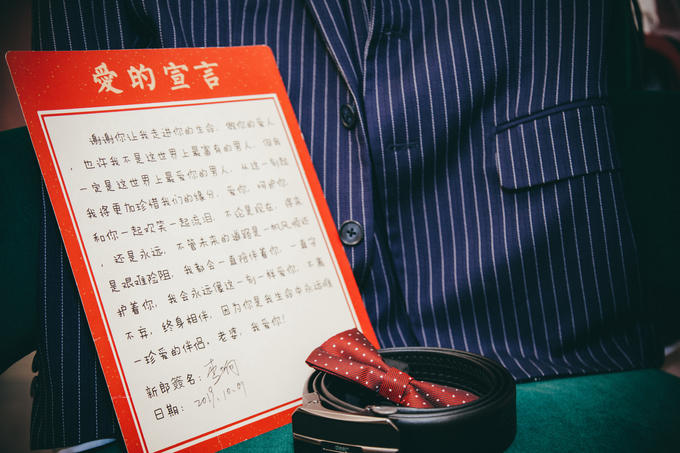 愛的宣言
谢谢你让我走进你的生命，做你的爱人
，也许我不是这世界上最富有的男人，但我
一定是这世界上最爱你的男人，从这一刻起
我将更加珍惜我们的缘分，爱你，呵护你，
和你一起欢笑一起流泪，不论是现在，将来
，还是永远，不管未来的道路是一帆风顺还
是艰难险阻，我都会一直陪伴着你，一直守
护着你，我会永远像这一刻一样爱你，不离
不弃，终身相伴，因为你是我生命中永远唯
一珍爱的伴侣，老婆，我爱你！
新郎签名：
日期：2019.10.07